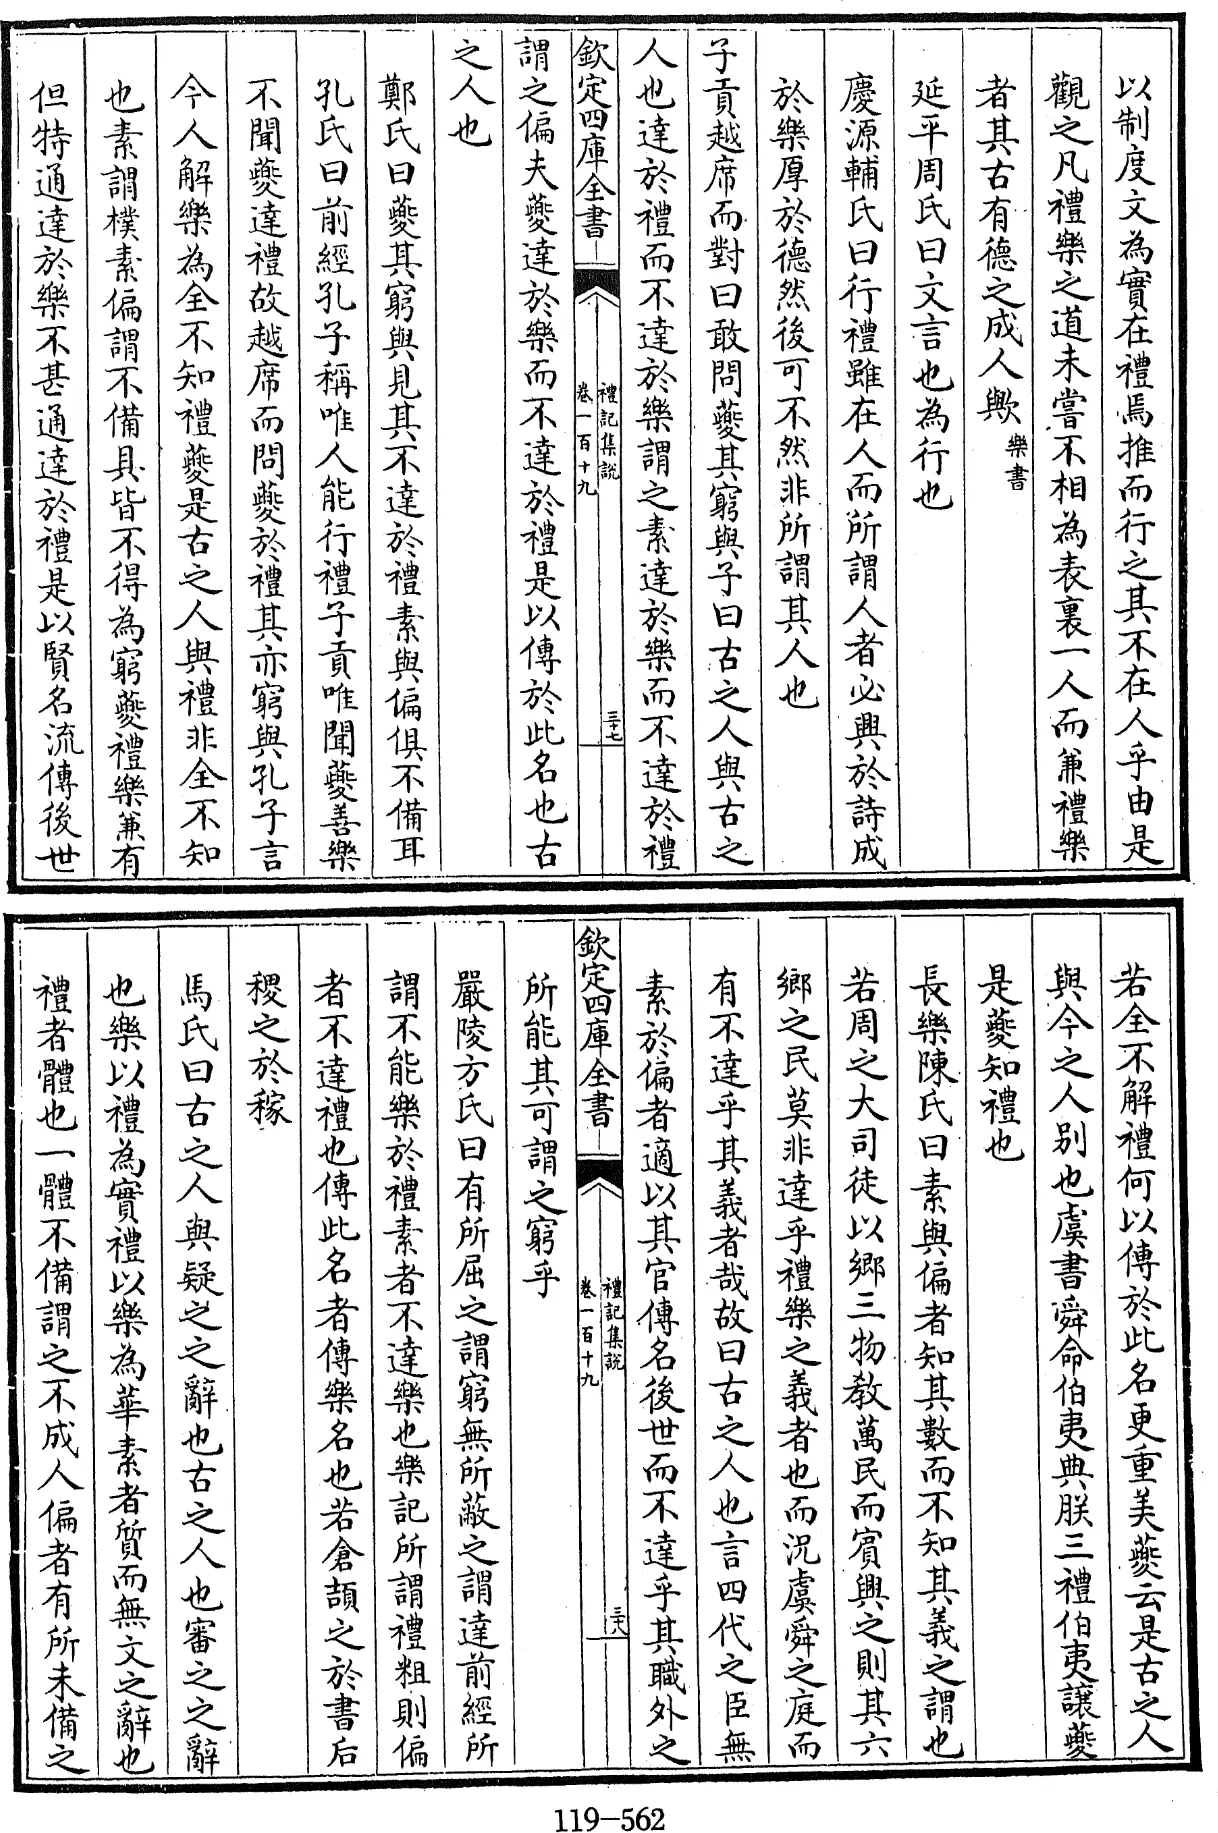 以制度文為實在禮焉推而行之其不在人乎由是
觀之凡禮樂之道未嘗不相為表裏一人而兼禮樂
者其古有德之成人歟樂書
延平周氏曰文言也為行也
慶源輔氏曰行禮雖在人而所謂人者必興於詩成
於樂厚於德然後可不然非所謂其人也
子貢越席而對曰敢問夔其窮與子曰古之人與古之
人也達於禮而不達於樂謂之素達於樂而不達於禮
欽定四庫全書
禮記集說
卷一百十九
三十七
謂之偏夫夔達於樂而不達於禮是以傳於此名也古
之人也
鄭氏曰夔其窮與見其不達於禮素與偏俱不備耳
孔氏曰前經孔子稱唯人能行禮子貢唯聞夔善樂
不聞夔達禮故越席而問夔於禮其亦窮與孔子言
今人解樂為全不知禮夔是古之人與禮非全不知
也素謂樸素偏謂不備具皆不得為窮夔禮樂兼有
但特通達於樂不甚通達於禮是以賢名流傳後世
若全不解禮何以傳於此名更重美夔云是古之人
與今之人別也虞書舜命伯夷典朕三禮伯夷讓夔
是夔知禮也
長樂陳氏曰素與偏者知其數而不知其義之謂也
若周之大司徒以鄉三物教萬民而賓興之則其六
鄉之民莫非達乎禮樂之義者也而況虞舜之庭而
有不達乎其義者哉故曰古之人也言四代之臣無
素於偏者適以其官傳名後世而不達乎其職外之
欽定四庫全書
禮記集說
卷一百十九
三十八
所能其可謂之窮乎
嚴陵方氏曰有所屈之謂窮無所蔽之謂達前經所
謂不能樂於禮素者不達樂也樂記所謂禮粗則偏
者不達禮也傳此名者傳樂名也若倉頡之於書后
稷之於稼
馬氏曰古之人與疑之之辭也古之人也審之之辭
也樂以禮為實禮以樂為華素者質而無文之辭也
禮者體也一體不備謂之不成人偏者有所未備之
119-562